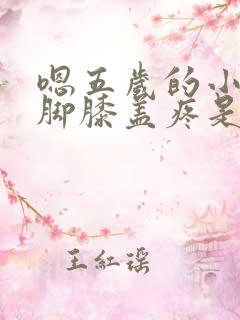 嗯五歲的小
脚膝盖疼是
王紅瑶